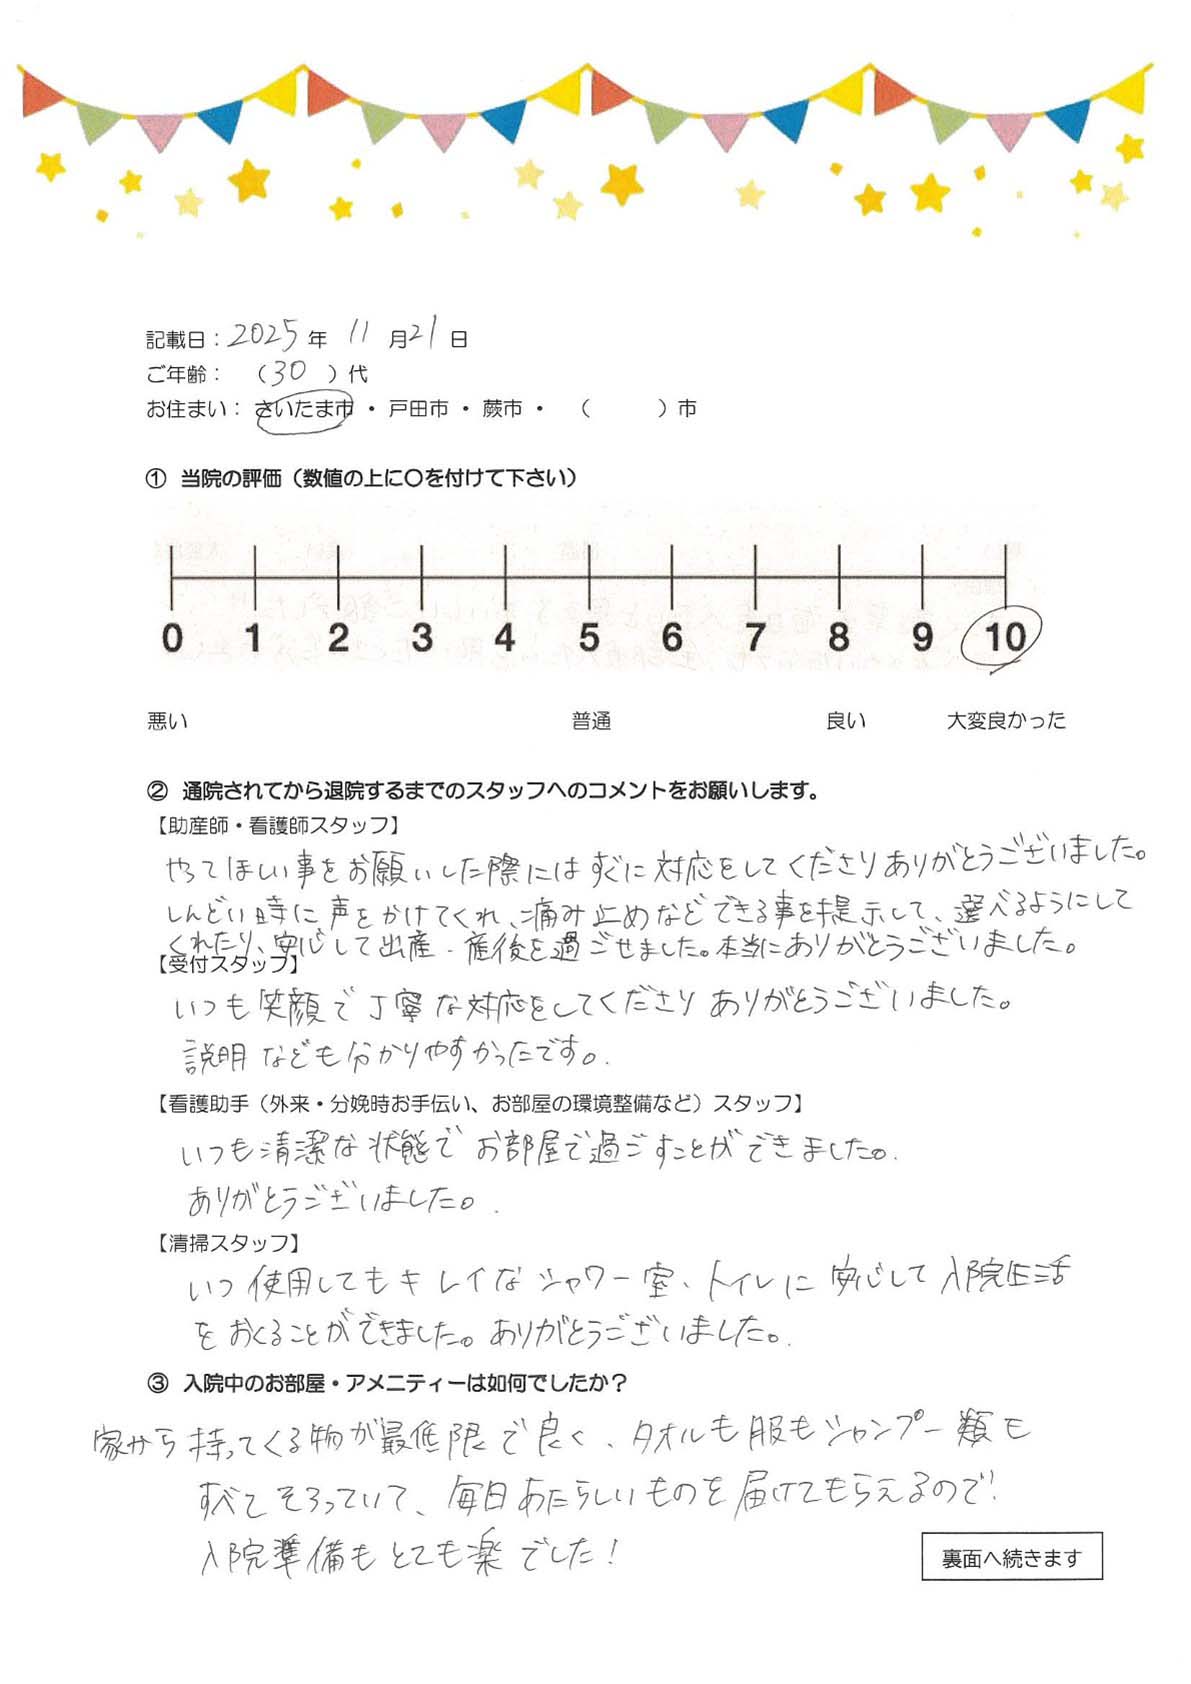 記載日：2025年 11月21日
ご年齢：（30 ）代
お住まい：さいたま市・戸田市・蕨市・（　　　）市
① 当院の評価（数値の上に〇を付けて下さい）
0 1 2 3 4 5 6 7 8 9 10
悪い 普通 良い 大変良かった
② 通院されてから退院するまでのスタッフへのコメントをお願いします。
【助産師・看護師スタッフ】
やってほしい事をお願いした際にはすぐに対応をしてくださりありがとうございました。
しんどい時に声をかけてくれ、痛み止めなどできる事を提示して、選べるようにして
くれたり、安心して出産・産後を過ごせました。本当にありがとうございました。
【受付スタッフ】
いつも笑顔で丁寧な対応をしてくださりありがとうございました。
説明なども分かりやすかったです。
【看護助手（外来・分娩時お手伝い、お部屋の環境整備など）スタッフ】
いつも清潔な状態でお部屋で過ごすことができました。
ありがとうございました。
【清掃スタッフ】
いつ使用してもキレイなシャワー室、トイレに安心して入院生活
をおくることができました。ありがとうございました。
③ 入院中のお部屋・アメニティーは如何でしたか？
家から持ってくる物が最低限で良く、タオルも服もシャンプー類も
すべてそろっていて、毎日あたらしいものを届けてもらえるので
入院準備もとても楽でした！
裏面へ続きます